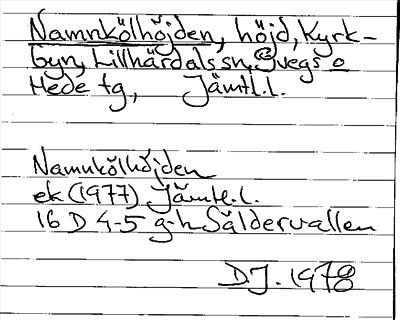 Namnkölhöjden, höjd, Kyrk-
byn, Lillhärdals sn, Svegs o
Hede tg, Jämtl.l.
Namnkölhöjden
ek (1977) Jämtl.l.
16 D 4-5 g-h Säldervallen
DJ. 1978